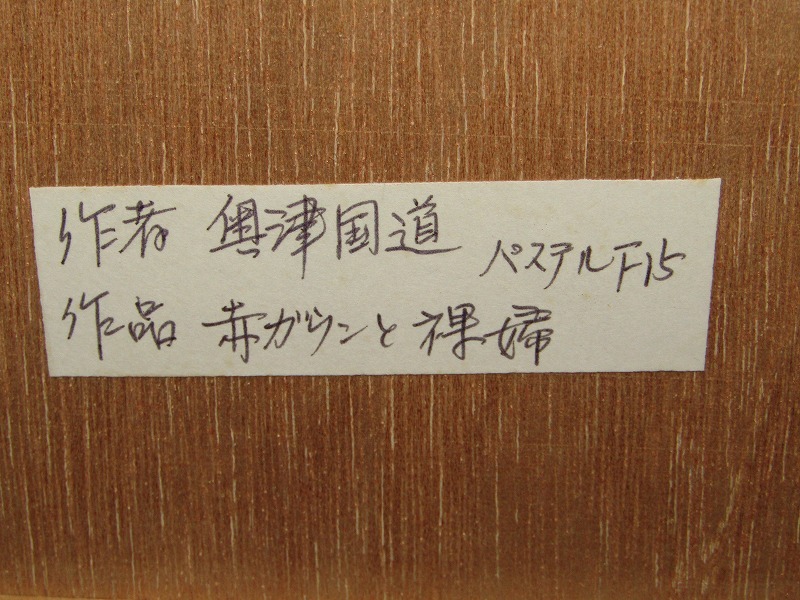 作者 奥津国道 パステルF15
作品 赤ガウンと裸婦